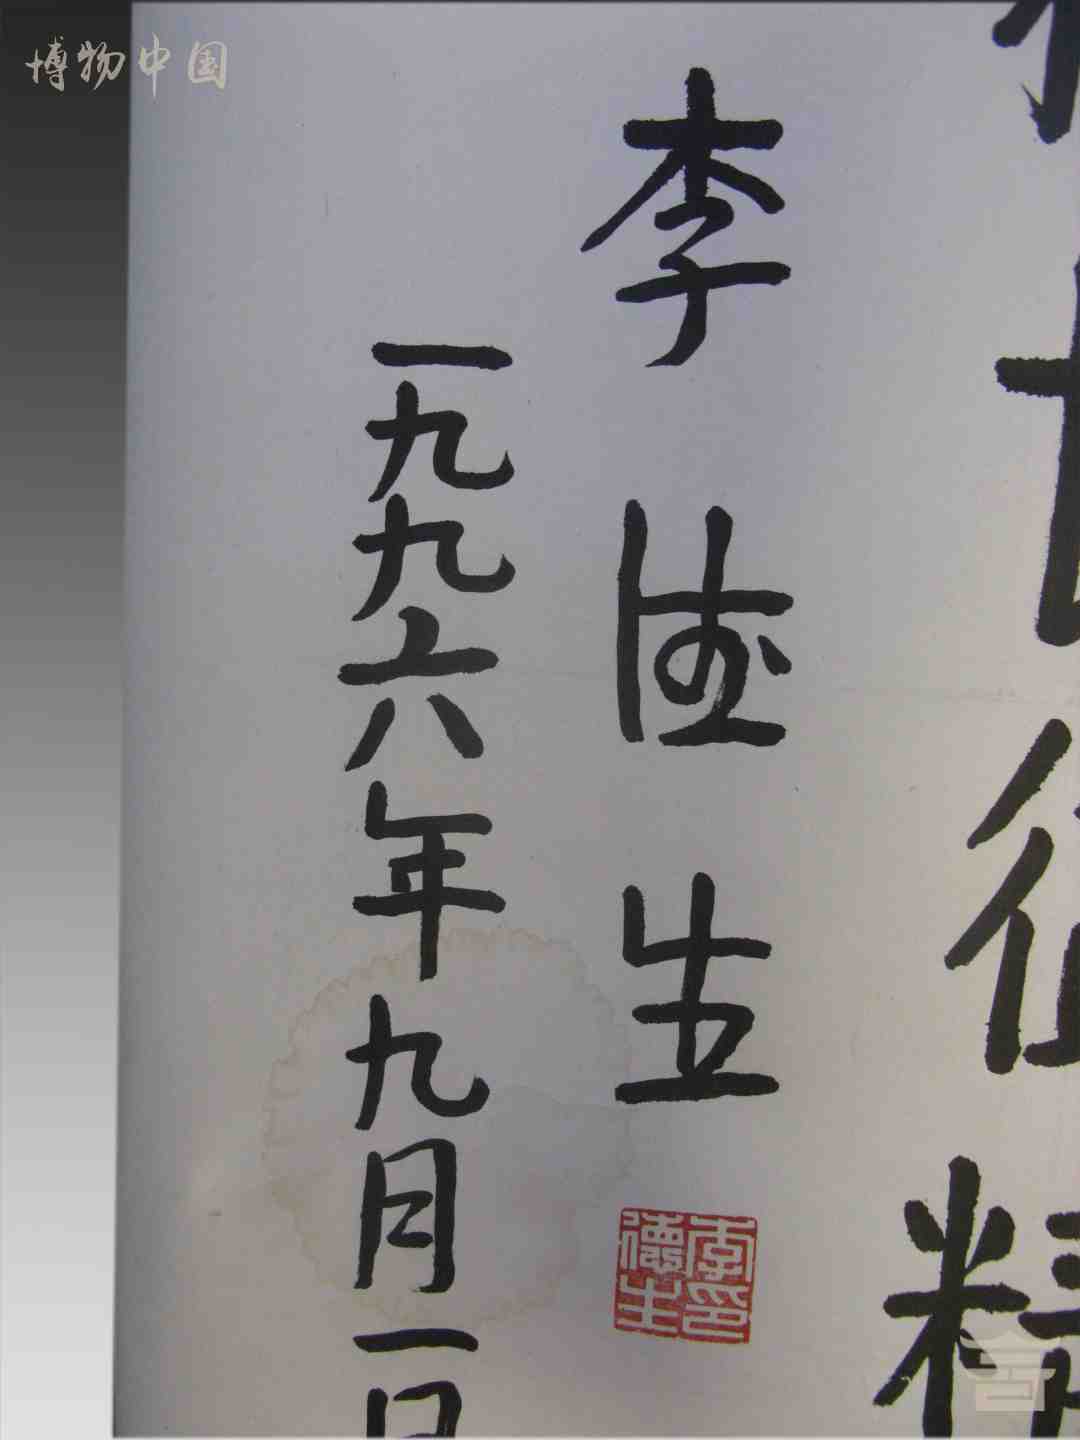 博物中国
长征精
李德生
一九九六年九月一日
李印
德生